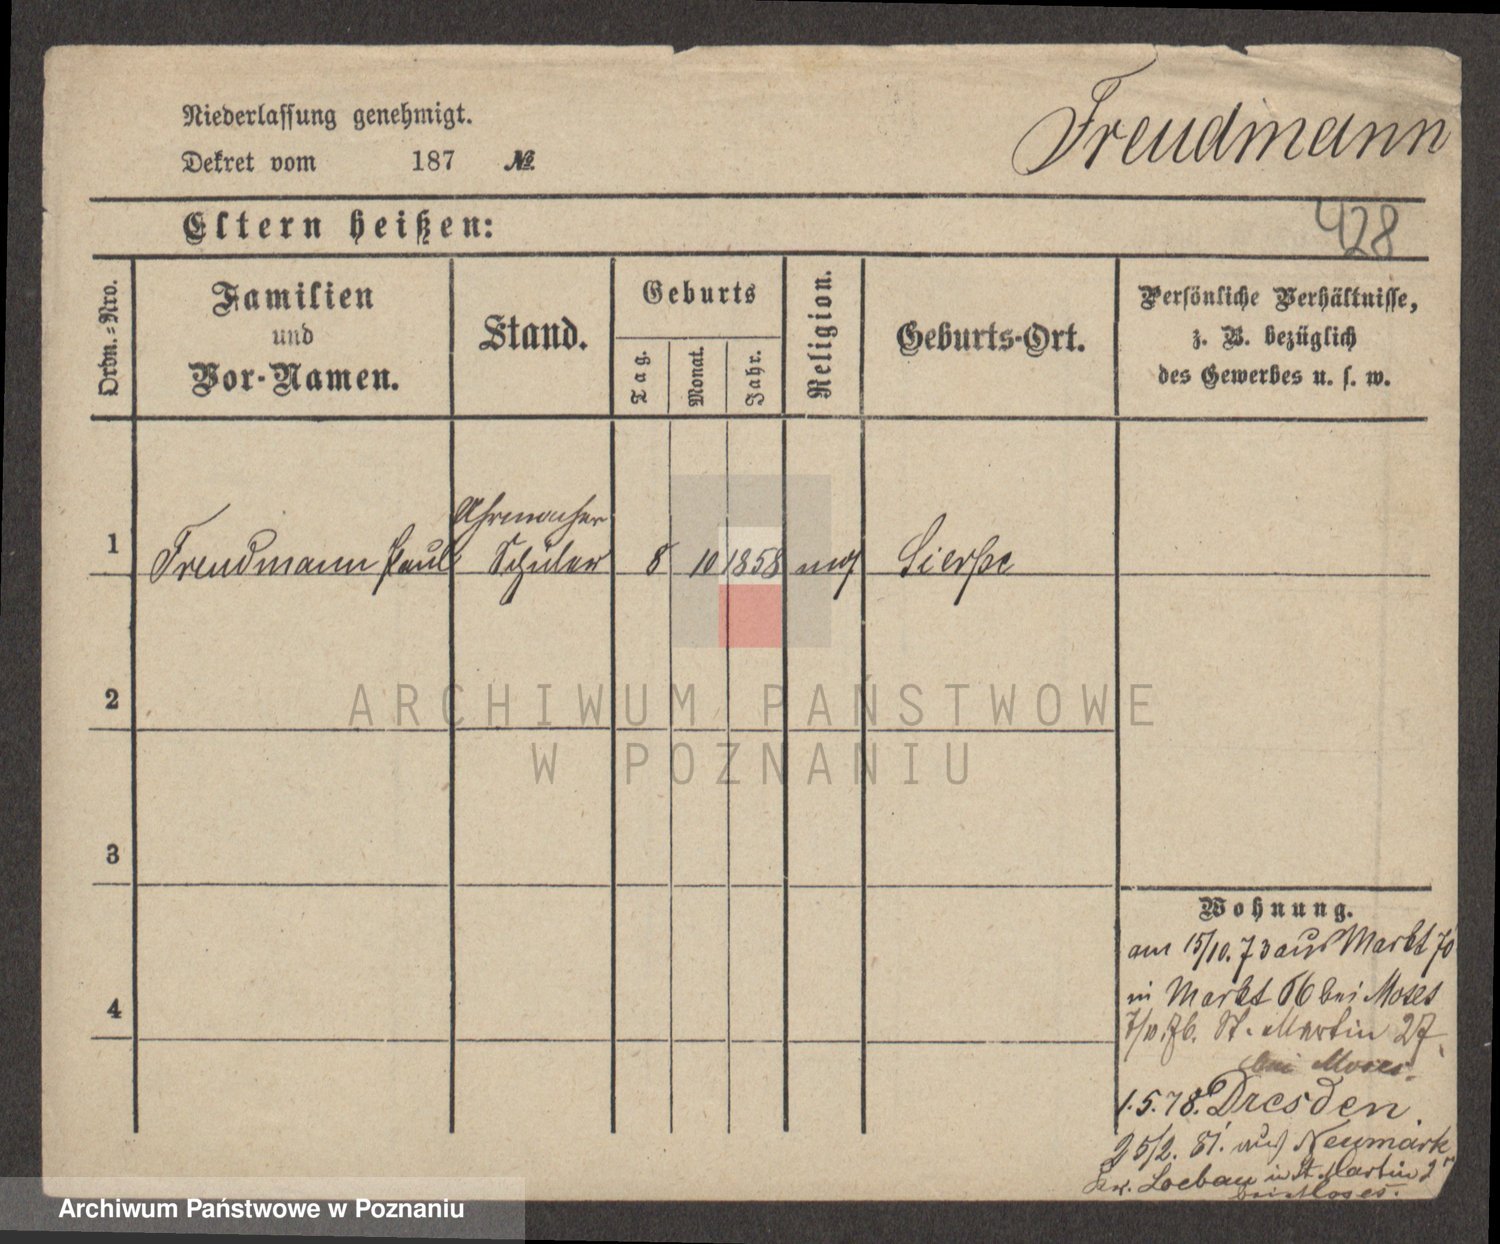 Niederlassung genehmigt.
Dekret vom 187 №
Freudmann
428
Eltern heißen:
Ordn.-Nro.
Familien
und
Vor-Namen.
Stand.
Geburts
Tag.
Monat.
Jahr.
Religion.
Geburts-Ort.
Persönliche Verhältnisse,
z. B. bezüglich
des Gewerbes u. s. w.
Uhrmacher
1 Freudmann Paul Schüler 8 10 1858 Sierpe
2
3
4
ARCHIWUM PAŃSTWOWE
W POZNANIU
Wohnung.
am 15/10. 73 aus Markt 70
in Markt 66 bei Moses
7/10. 76. St. Martin 27
bei Moses.
1.5.78. Dresden.
25/2. 81. aus Neumark
Loebau in St. Martin
bei Moses.
Archiwum Państwowe w Poznaniu